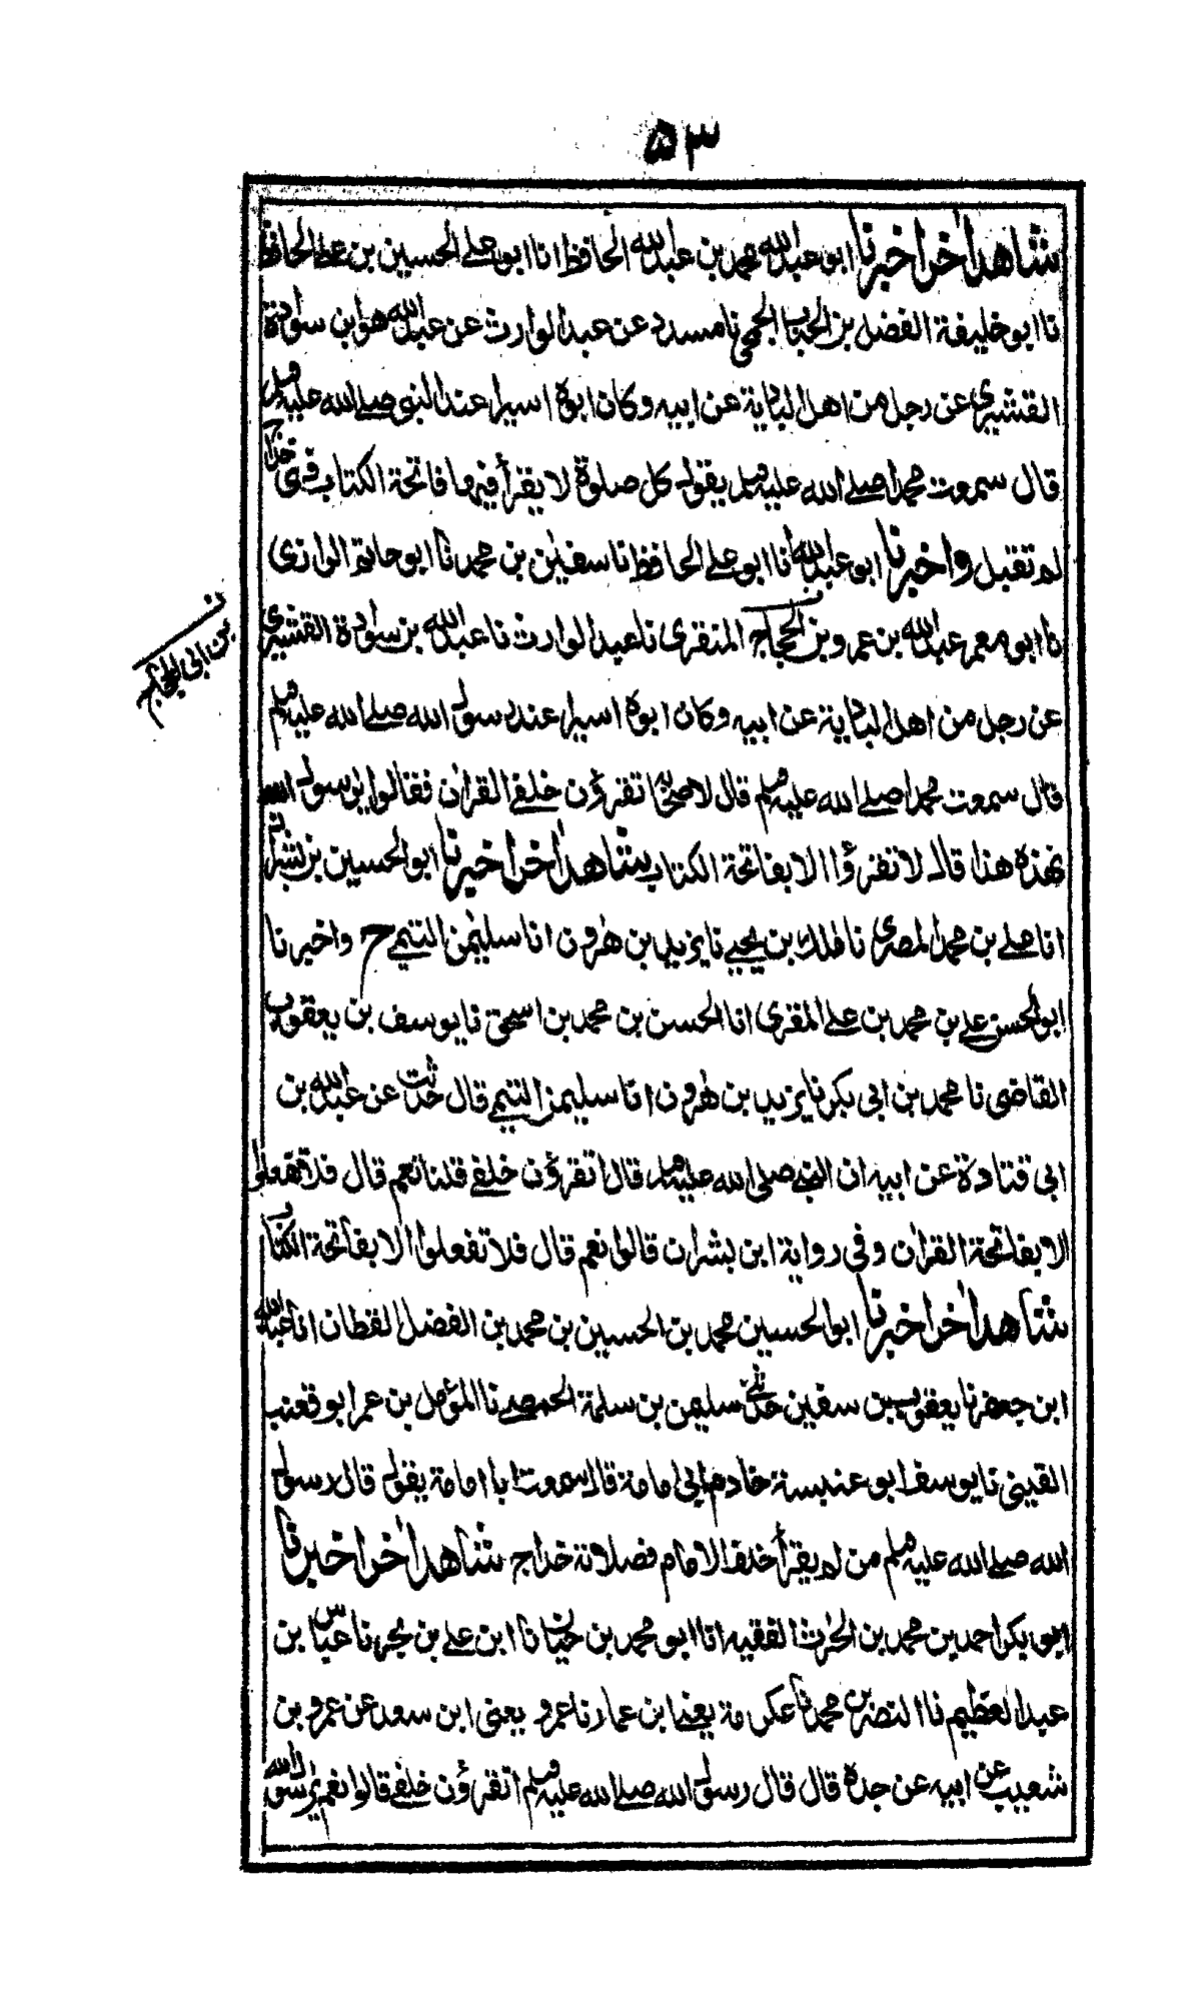 ۵۳
شاهدا اخر اخبرنا ابو عبد الله محمد بن عبد الله الحافظ انا ابو علي الحسين بن علي الحافظ
نا ابو خليفة الفضل بن الحباب الجمحي نا مسدد عن عبد الوارث عن عبد الله هو ابن سوادة
القشيري عن رجل من اهل البادية عن ابيه وكان ابوه اسيرا عند النبي صلے الله عليه وسلم
قال سمعت محمدا صلے الله عليه وسلم يقول كل صلوة لا يقرأ فيها فاتحة الكتاب فهي خداج
لم تقبل واخبرنا ابو عبد الله انا ابو علي الحافظ نا سفيٰن بن محمد نا ابو حاتم الرازي
نا ابو معمر عبد الله بن عمرو بن الحجاج المنقري نا عبد الوارث نا عبد الله بن سوادة القشيري
ن بن ابي الحجاج
عن رجل من اهل البادية عن ابيه وكان ابوه اسيرا عند رسول الله صلے الله عليه وسلم
قال سمعت محمدا صلے الله عليه وسلم قال لاصحابه اتقرؤن خلفے القراٰن فقالوا يا رسول الله
نهذه هذا قال لا تقرؤا الا بفاتحة الكتاب شاهدا اخر اخبرنا ابو الحسين بن بشران
انا علے بن محمد المصري نا ملك بن يحيے نا يزيد بن هٰرون انا سليمٰن التيمے ح واخبرنا
ابو الحسن علے بن محمد بن علے المقري انا الحسن بن محمد بن اسحق نا يوسف بن يعقوب
القاضي نا محمد بن ابي بكر نا يزيد بن هٰرون انا سليمٰن التيمے قال حدثت عن عبد الله بن
ابي قتادة عن ابيه ان النبي صلى الله عليه وسلم قال اتقرؤن خلفے قلنا نعم قال فلا تفعلوا
الا بفاتحة القراٰن وفي رواية ابن بشران قالوا نعم قال فلا تفعلوا الا بفاتحة الكتاب
شاهدا اٰخر اخبرنا ابو الحسين محمد بن الحسين بن محمد بن الفضل القطان انا عبد الله
ابن جعفر نا يعقوب بن سفيٰن حدثنے سليمٰن بن سلمة الحمصے نا المؤمل بن عمر ابو قعنب
القيني نا يوسف ابو عنبسة خادم ابي امامة قال سمعت ابا امامة يقول قال رسول
الله صلے الله عليه وسلم من لم يقرأ خلف الامام فصلاته خداج شاهدا اٰخر اخبرنا
ابو بكر احمد بن محمد بن الحٰرث الفقيه انا ابو محمد بن حيان نا ابن علے بن بحر نا عباس بن
عبد العظيم نا النضر بن محمد نا عكرمة يعني ابن عمار نا عمرو يعني ابن سعد عن عمرو بن
شعيب عن ابيه عن جده قال قال رسول الله صلے الله عليه وسلم اتقرؤن خلفے قالوا نعم يا رسول الله